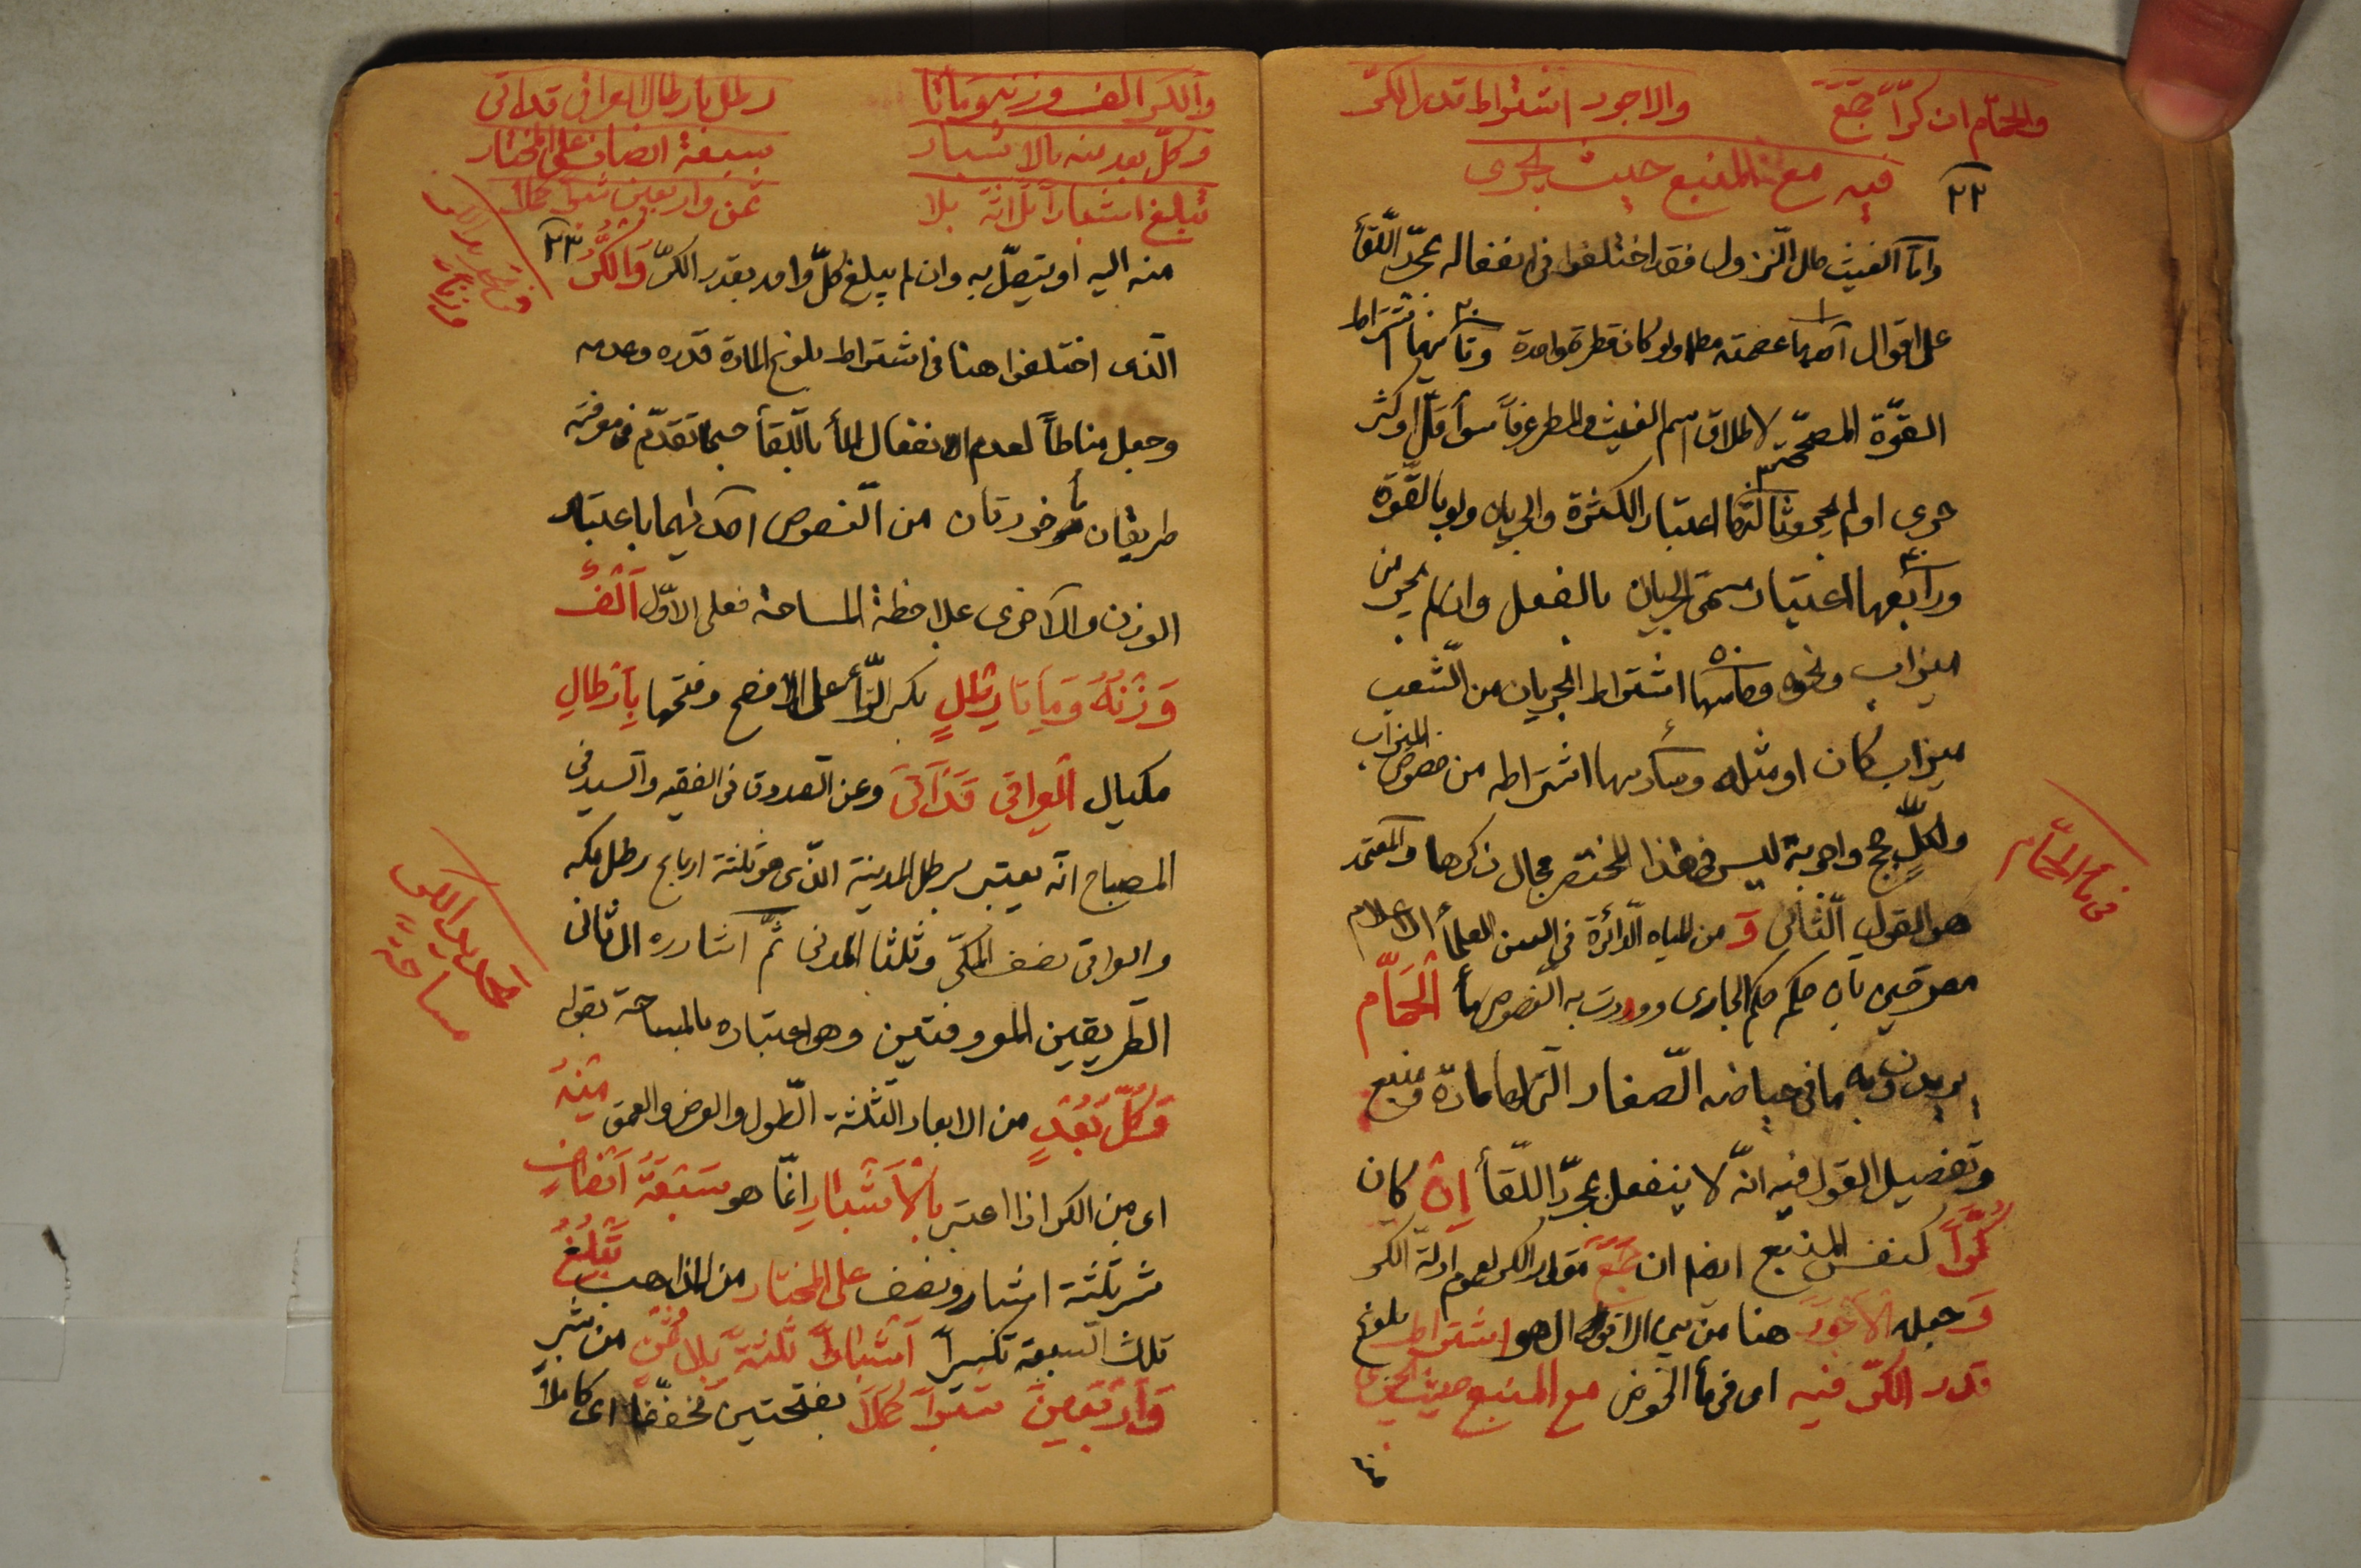 والحمّام ان كرّاً جمع
والاجود اشتراط قدر الكرّ
فيه مع المنبع حيث يجرى
٢٢
وامّا الغيث حال النّزول فقد اختلفوا فى انفعاله بمجرّد اللّقأ
على اقوال احدها عصمته مطلقا ولو كان قطرة واحدة وثانيها اشتراط
القوّة المصحّحة لاطلاق اسم الغيث والمطر عرفاً سوأ قلّ او كثر
جرى او لم يجر وثالثها اعتبار الكثرة والجريان ولو بالقوّة
ورابعها اعتبار مسمّى الجريان بالفعل وان لم يجر من
ميزاب ونحوه وخامسها اشتراط الجريان من الشّعب
ميزاب كان او مثله وسادسها اشتراطه من خصوص الميزاب
ولكلٍّ حجج واجوبة ليس فى هذا المختصر مجال ذكرها والمعتمد
هو القول الثّانى وَ من المياه الدّائرة فى السن العلمأ الاعلام
مصرّحين بان حكمه حكم الجارى ووردت به النّصوص مأ اَلْحَمّامِ
يريدون به ما فى حياضه الصّغار الّتى لها مادّة ومنبع
وتفصيل القول فيه انّه لا ينفعل بمجرّد اللّقأ اِنْ كان
كُرّاً كنفس المنبع ايضا ان جَمَعَ مقدار الكر لعموم ادلّة الكر
وَ جعله الْاَجْوَدَ هنا من بين الاقوال هو اشتراط بلوغ
قدر الكرّ فيه اى فى مأ الحوض مع المنبع حيث يجرى
فى مأ الحمّام
والكر الف وزنه ومائتا
رطل بارطال العراقى قد اتى
وكلّ بعد منه بالاشبار
سبعة انصاف على المختار
تبلغ اشباراً ثلاثة بلا
ثمن واربعين شبراً كملا
٢٣
منه اليه او يتّصل به وان لم يبلغ كلّ واحد بقدر الكرّ وَالْكُرُّ
الّذى اختلفوا هنا فى اشتراط بلوغ المادة قدره وعدمه
وجعل مناطاً لعدم انفعال المأ باللّقأ حسبما تقدّم فى معرفته
طريقان مأخوذتان من النّصوص احديهما باعتبار
الوزن والاخرى بملاحظة المساحة فعلى الاوّل اَلْفٌ
وَزْنُهُ وَمِاَتا رِطْلٍ بكسر الرّأ على الافصح وفتحها بِاَرْطالِ
مكيال الْعِراقى قَدْ اَتى وعن الصدوق فى الفقيه والسيد فى
المصباح انّه يعتبر برطل المدينة الّذى هو ثلثة ارباع رطل مكه
والعراقى نصف المكّى وثلثا المدنى ثمّ اشاره الى ثانى
الطّريقين المعروفتين وهو اعتباره بالمساحة بقوله
وَكُلُّ بُعْدٍ من الابعاد الثّلثة الطّول والعرض والعمق مِنْهُ
اى من الكر اذا اعتبر بِالْاَشْبارِ انّما هو سَبْعَةُ اَنْصافِ
شبر ثلثة اشبار ونصف على المختار من المذاهب تَبْلُغُ
تلك السبعة تكسيراً اَشْباراً ثَلثَةً بِلا ثُمْنٍ من شبر
وَاَرْبَعينَ شِبْراً كَمَلا بفتحتين مخفّفا اى كاملاً
مساحةً